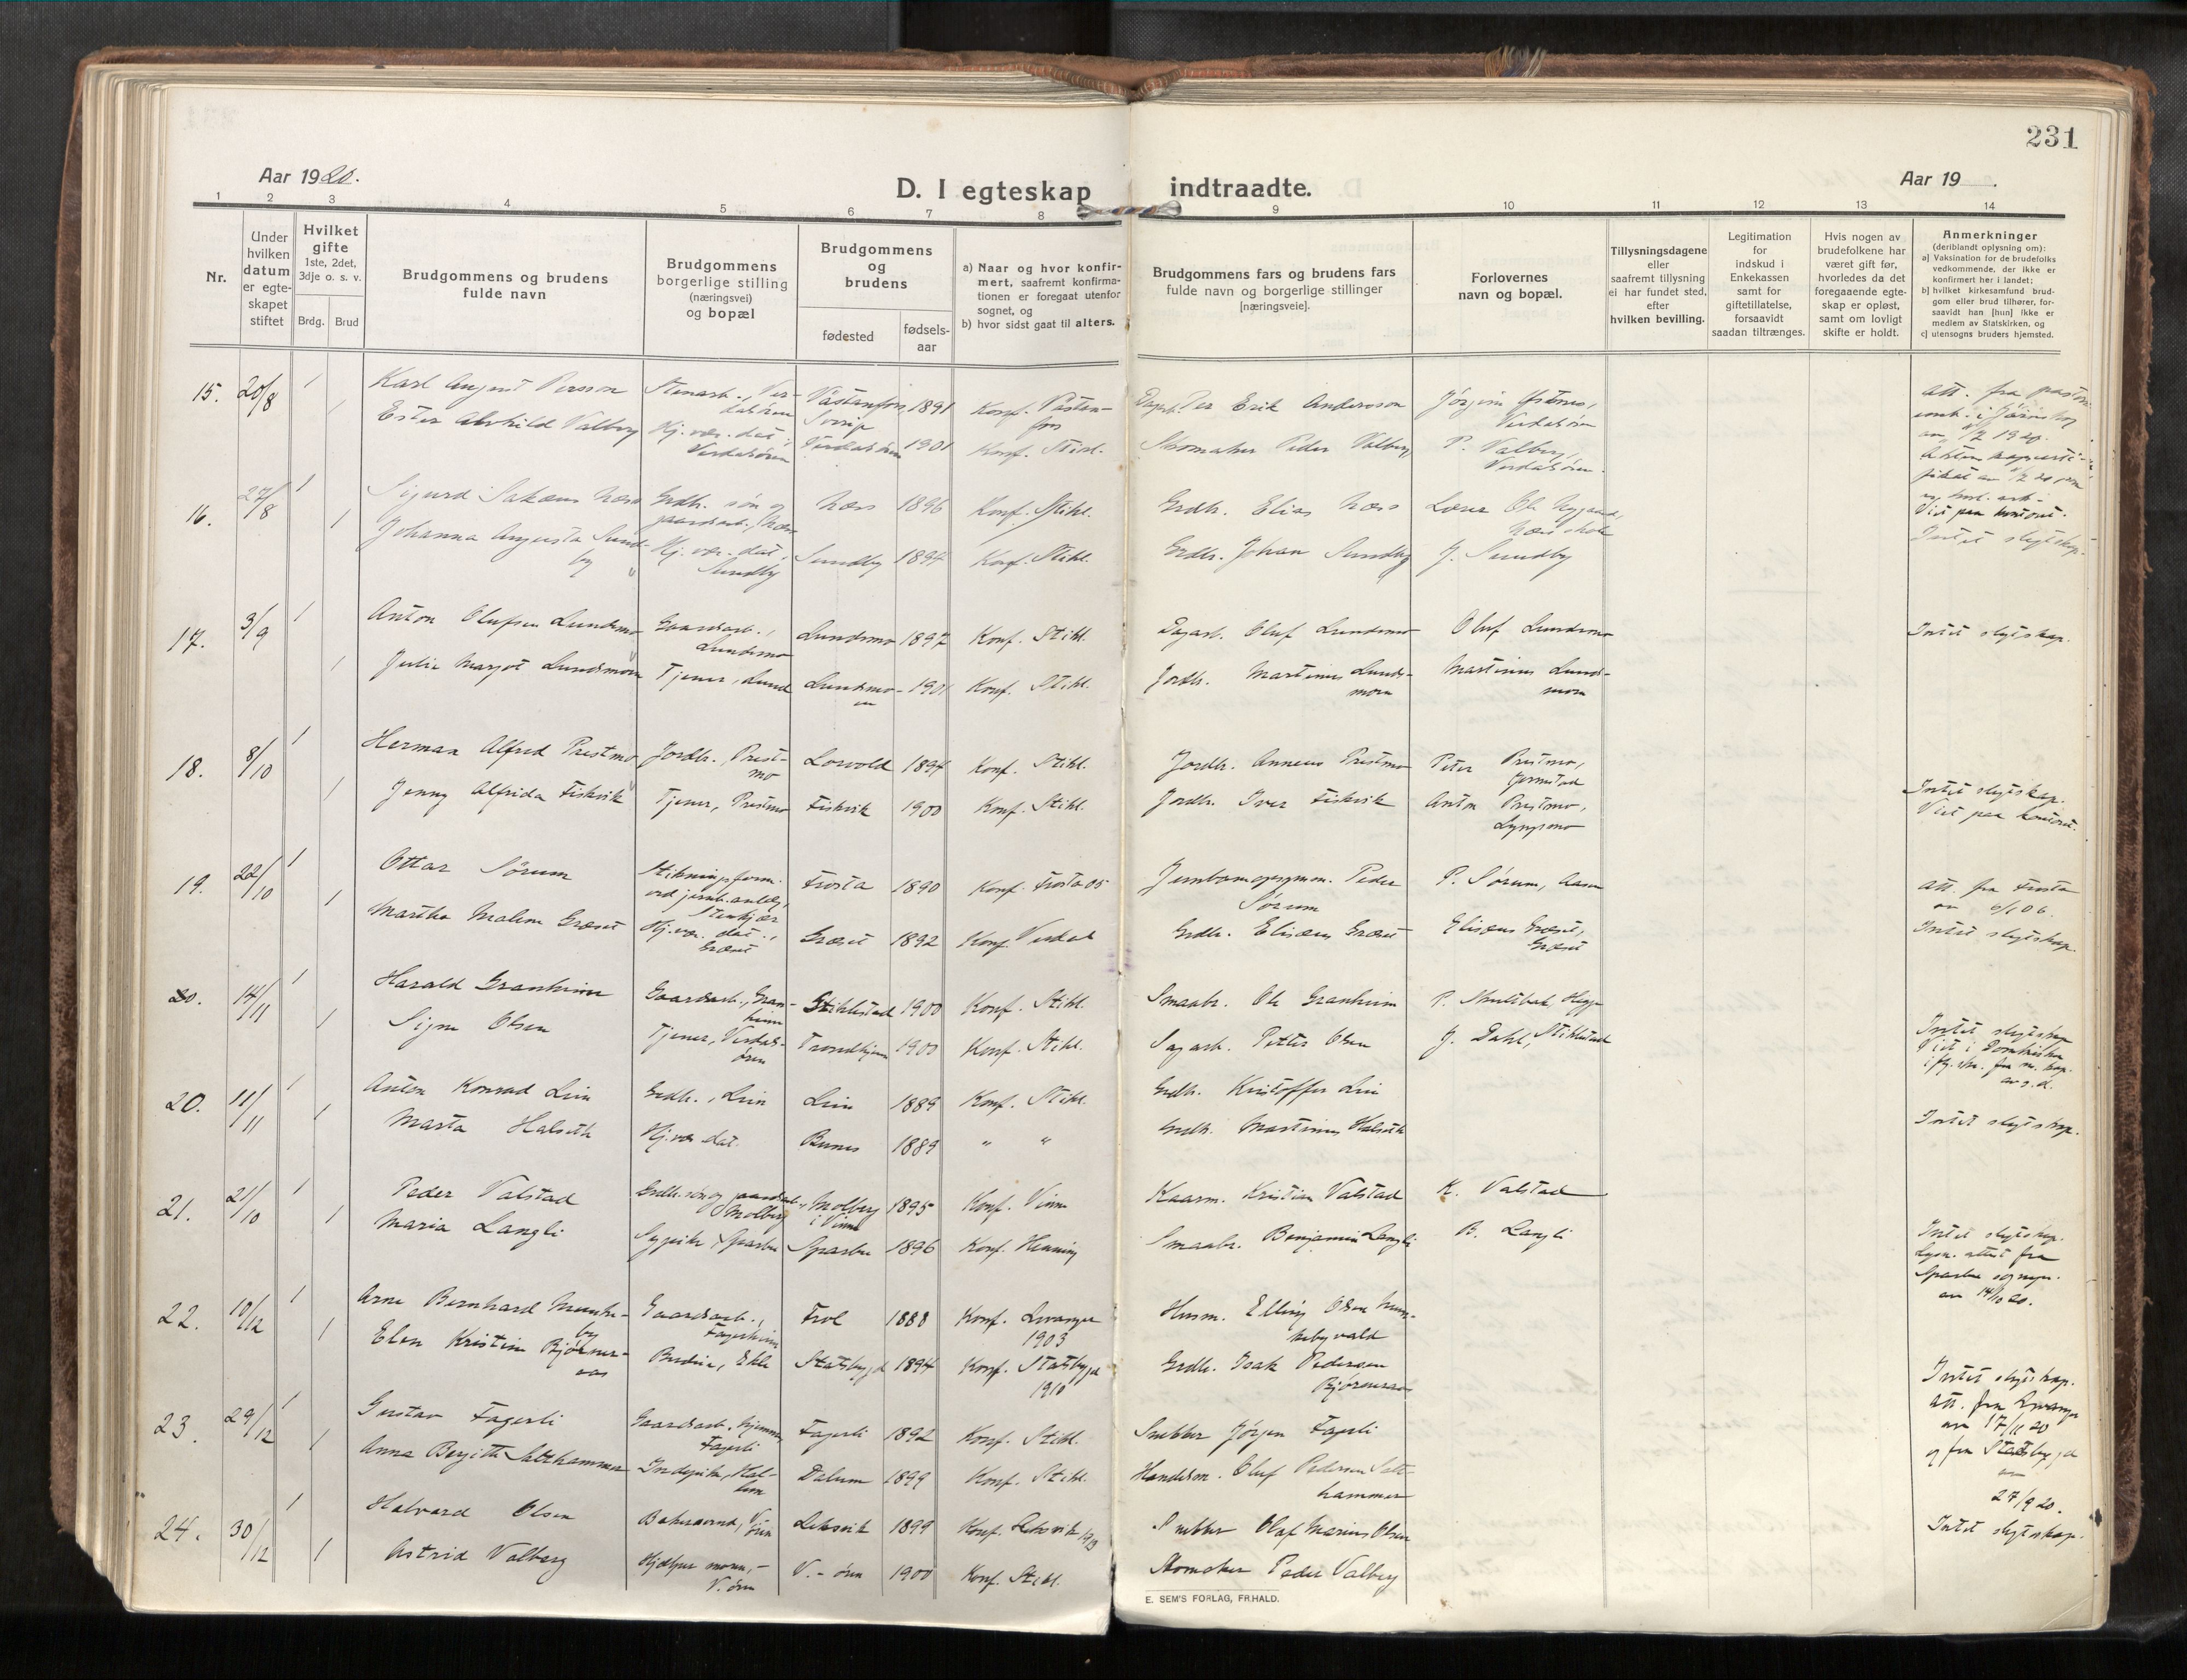 231
Aar 1920.
D. I egteskap indtraadte.
Aar 19 .
1 2 3 4 5 6 7 8 9 10 11 12 13 14
Nr.
Under hvilken datum er egteskapet stiftet
Hvilket gifte 1ste, 2det, 3dje o. s. v.
Brdg. Brud
Brudgommens og brudens fulde navn
Brudgommens borgerlige stilling (næringsvei) og bopæl
Brudgommens og brudens
fødested
fødsels-aar
a) Naar og hvor konfirmert, saafremt konfirmationen er foregaat utenfor sognet, og
b) hvor sidst gaat til alters.
Brudgommens fars og brudens fars fulde navn og borgerlige stillinger [næringsveie].
Forlovernes navn og bopæl.
Tillysningsdagene eller saafremt tillysning ei har fundet sted, efter hvilken bevilling.
Legitimation for indskud i Enkekassen samt for giftetillatelse, forsaavidt saadan tiltrænges.
Hvis nogen av brudefolkene har været gift før, hvorledes da det foregaaende egteskap er opløst, samt om lovligt skifte er holdt.
Anmerkninger (deriblandt oplysning om):
a] Vaksination for de brudefolks vedkommende, der ikke er konfirmert her i landet;
b] hvilket kirkesamfund brudgom eller brud tilhører, forsaavidt han [hun] ikke er medlem av Statskirken, og
c] utensogns bruders hjemsted.
15. 20/8 1 Karl August Persson Stenarb., Verdalsøren 1891 Konf.
1 Ester Valborg Hj.vær. dat., Verdalsøren Verdalsøren 1901 Konf. Stikl. Skomaker Peder Valberg P. Valberg, Verdalsøren
Viet paa kontoret.
16. 27/8 1 Sigurd Næss Grdbr. søn og gaardsarb., Næss Næss 1896 Konf. Stikl. Grdbr. Elias Næss
1 Johanna Augusta Sundby Hj. vær. dat., Sundby Sundby 1894 Konf. Stikl. Grdbr. Johan Sundby J. Sundby
Intet slegtskap.
17. 3/9 1 Anton Olufsen Lundsmo Gaardsarb., Lundsmo Lundsmo 1897 Konf. Stikl. Dagarb. Oluf Lundsmo Oluf Lundsmo Intet slegtskap.
1 Julie Margot Lundsmoen Tjener, Lund Lundsmoen 1901 Konf. Stikl. Jordbr. Martinus Lundsmoen Martinus Lundsmoen
18. 8/10 1 Herman Alfred Prestmo Jordbr., Prestmo Lorvold 1894 Konf. Stikl. Jordbr. Anneus Prestmo Peter Prestmo,
1 Jenny Alfrida Fiskvik Tjener, Prestmo Fiskvik 1900 Konf. Stikl. Jordbr. Iver Fiskvik Anton Prestmo, Lyngsmo
Intet slegtskap.
Viet paa kontoret.
19. 22/10 1 Ottar Sørum Stikningsform. ved jernb.anlæg, Stenkjær Frosta 1890 Konf. Frosta 05 Peder Sørum P. Sørum, Aasen att. fra Frosta
1 Martha Malena Græset Hj.vær. dat., Græset Græset 1892 Konf. Verdal Grdbr. Elisæus Græset Elisæus Græset, Græset Intet slegtskap.
20. 14/11 1 Harald Granheim Gaardsarb., Granheim Stiklestad 1900 Konf. Stikl. Smaabr. Ole Granheim
1 Signe Olsen Tjener, Verdalsøren Trondhjem 1900 Konf. Stikl. Sagarb. Petter Olsen J. Dahl, Stiklestad
Intet slegtskap
20. 11/11 1 Anton Konrad Lein Grdbr., Lein Lein 1889 Konf. Stikl. Grdbr. Kristoffer Lein
1 Marta Halseth Hj.vær dat. Bunes 1889 " " Grdbr. Martinus Halseth Intet slegtskap.
21. 21/10 1 Peder Valstad Grdbr.søn og gaardsarb., Molberg Molberg i Vinne 1895 Konf. Vinne Kaarm. Kristian Valstad K. Valstad
1 Maria Langli Sypike, Sparbu Sparbu 1896 Konf. Henning Smaabr. Benjamin Langli B. Langli
Intet slegtskap.
Lysn. attest fra Sparbu sogнepr. av 14/10 20.
22. 10/12 1 Arne Bernhard Munkeby Gaardsarb., Fagerheim Frol 1888 Konf. Levanger 1903 Husm. Elling Olsen Munkebyvald
1 Elen Kristine Bjørneraas Budeie, Ekle Statsbygd 1894 Konf. Statsbygd 1910 Grdbr. Isak Pedersen Bjørneraas
Intet slegtskap.
att. fra Levanger av 17/11 20
og fra Statsbygd av 27/9 20.
23. 29/12 1 Gustav Fagerli Gaardsarb. hjemme, Fagerli Fagerli 1892 Konf. Stikl. Snekker Jørgen Fagerli
1 Anna Bergitte Salthammer Indepike, Dalum 1899 Konf. Stikl. Handelsm. Oluf Pedersen Salthammer
24. 30/12 1 Halvard Olsen Bakersvend, V.-øren Leksvik 1899 Konf. Leksvik 1913 Snekker Olaf Marius Olsen Intet slegtskap.
1 Astrid Valberg Hjelper moren, V.øren V.-øren 1900 Konf. Stikl. Skomaker Peder Valberg
E. SEM'S FORLAG, FR.HALD.